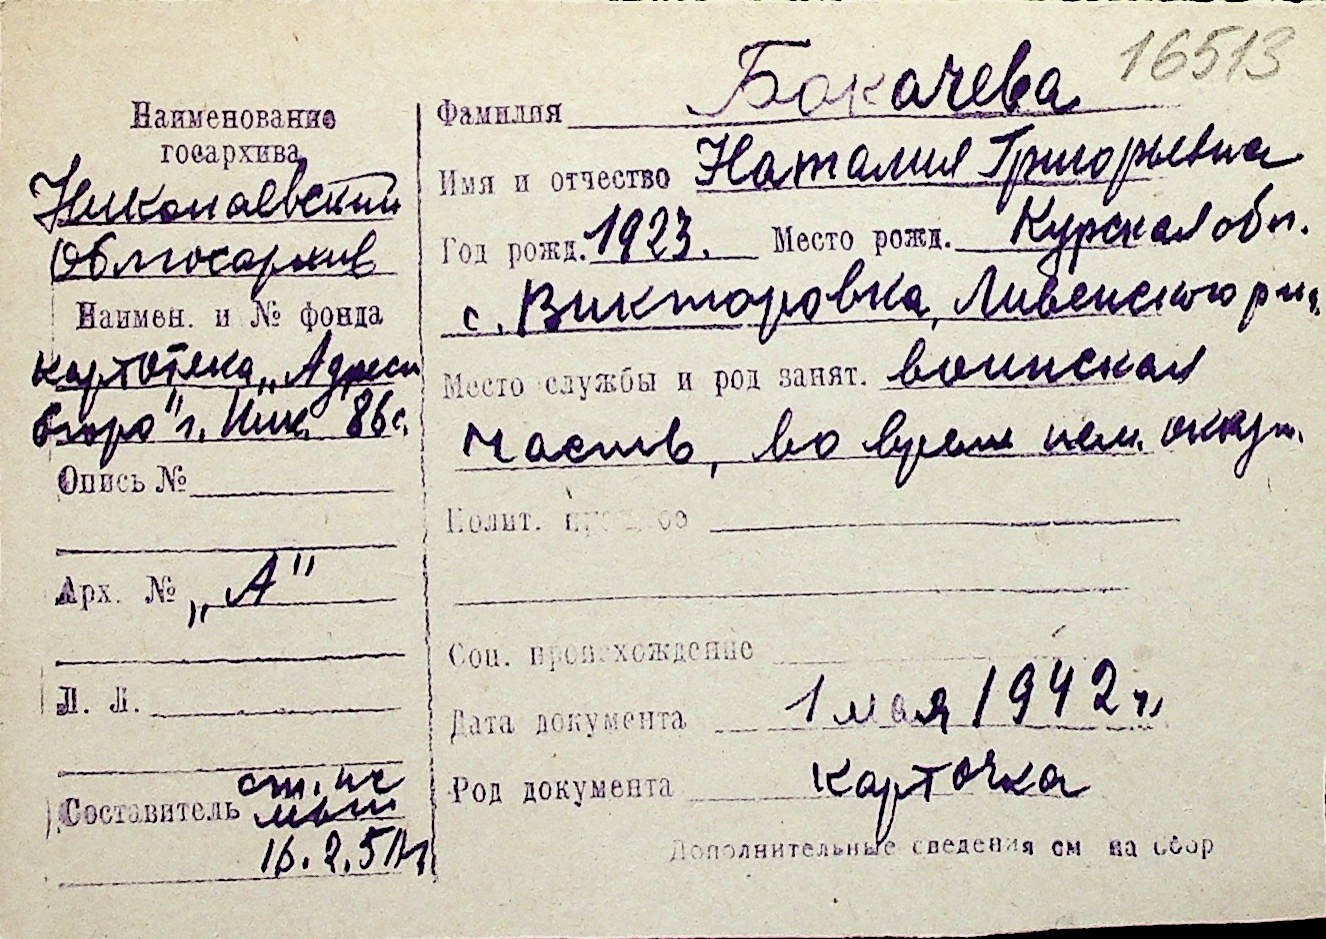 16513
Наименование
госархива
Николаевский
Облгосархив
Наимен. и № фонда
картотека „Адресн
бюро" г. Ник. 86с.
Опись №
Арх. № „А"
Л. Л.
Составитель ст. нс
16.2.51г
Фамилия Бокачева
Имя и отчество Наталия Григорьевна
Год рожд. 1923. Место рожд. Курская обл.
с. Викторовка, Ливенского р-на,
Место службы и род занят. воинская
часть, во время нем. оккуп.
Полит.
Соц. происхождение
Дата документа 1 мая 1942 г.
Род документа карточка
Дополнительные сведения см на обор